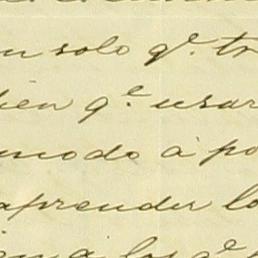 n solo q.e tr
bien q.e usar
modo à po
aprender lo
los q.e